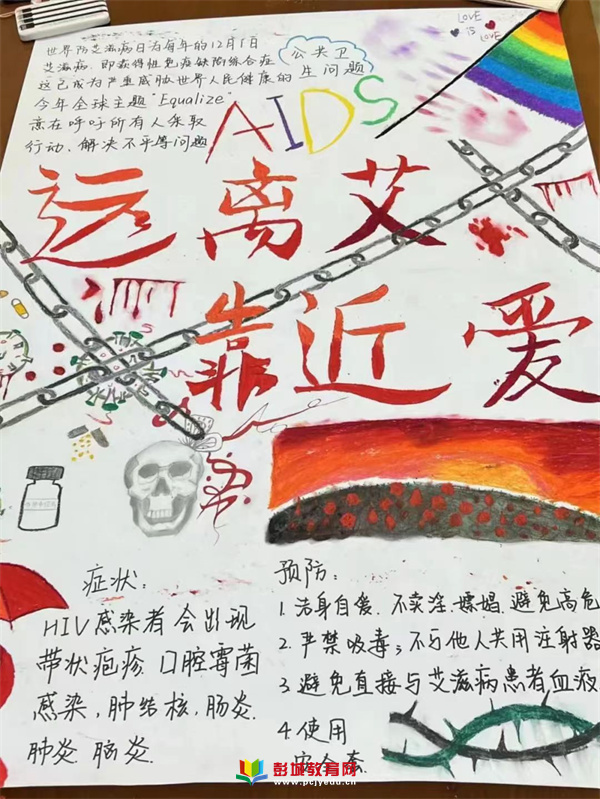 世界防艾滋病日为每年的12月1日
艾滋病,即获得性免疫缺陷综合症
这已成为严重威胁世界人民健康的
公共卫
生问题
今年全球主题"Equalize"
意在呼吁所有人采取
行动,解决不平等问题
LOVE
IS
LOVE
AIDS
远离艾
靠近爱
症状:
HIV感染者会出现
带状疱疹.口腔霉菌
感染,肿结核.肠炎.
肿炎.脑炎.
预防:
1.洁身自爱.不卖淫.嫖娼.避免高危
2.严禁吸毒;不与他人共用注射器
3.避免直接与艾滋病患者血液
4.使用
安全套.
彭城教育网
www.pcjyedu.cn